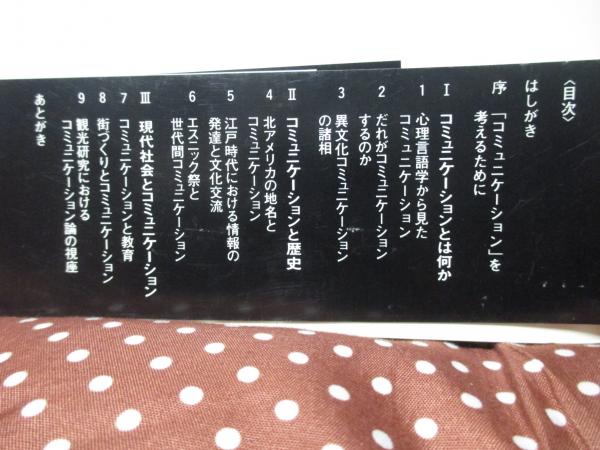 〈目次〉
はしがき
序 「コミュニケーション」を
考えるために
Ⅰ コミュニケーションとは何か
1 心理言語学から見た
コミュニケーション
2 だれがコミュニケーション
するのか
3 異文化コミュニケーション
の諸相
Ⅱ コミュニケーションと歴史
4 北アメリカの地名と
コミュニケーション
5 江戸時代における情報の
発達と文化交流
6 エスニック祭と
世代間コミュニケーション
Ⅲ 現代社会とコミュニケーション
7 コミュニケーションと教育
8 街づくりとコミュニケーション
9 観光研究における
コミュニケーション論の視座
あとがき